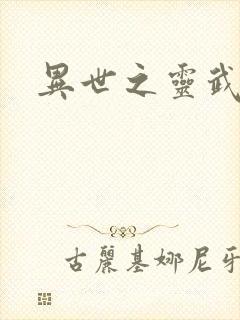 異世之靈武
古麗基娜尼牙